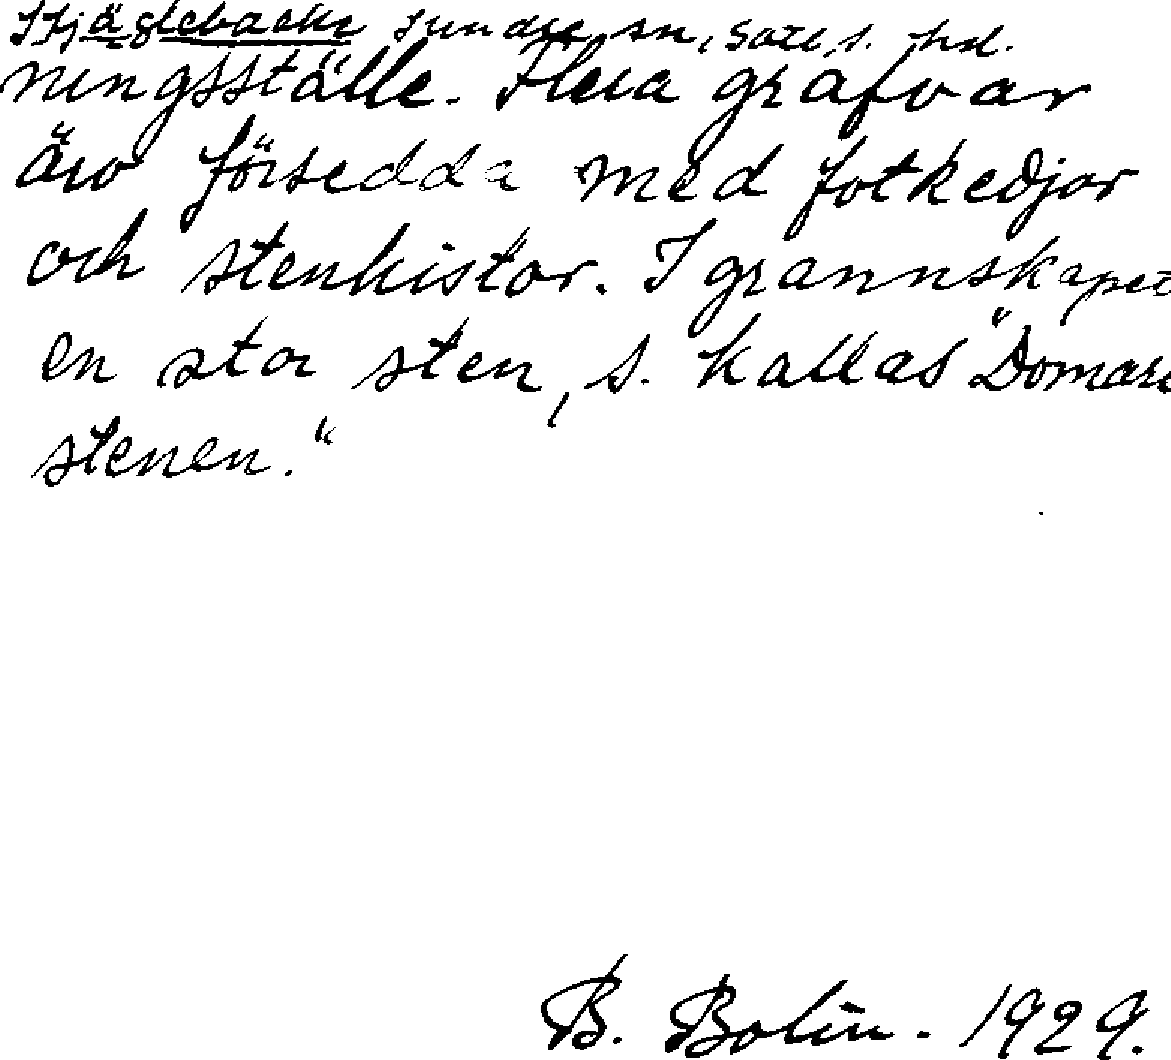 Stjäglebacke Sundre sn, hd.
ningsställe. Flera grafvar
äro försedda med fotkedjor
och stenkistor. I grannskapet
en stor sten, s. kallas "Domare
stenen."
B. Bolin. 1929.